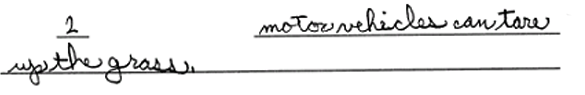 2 motor vehicles can tare
up the grass.